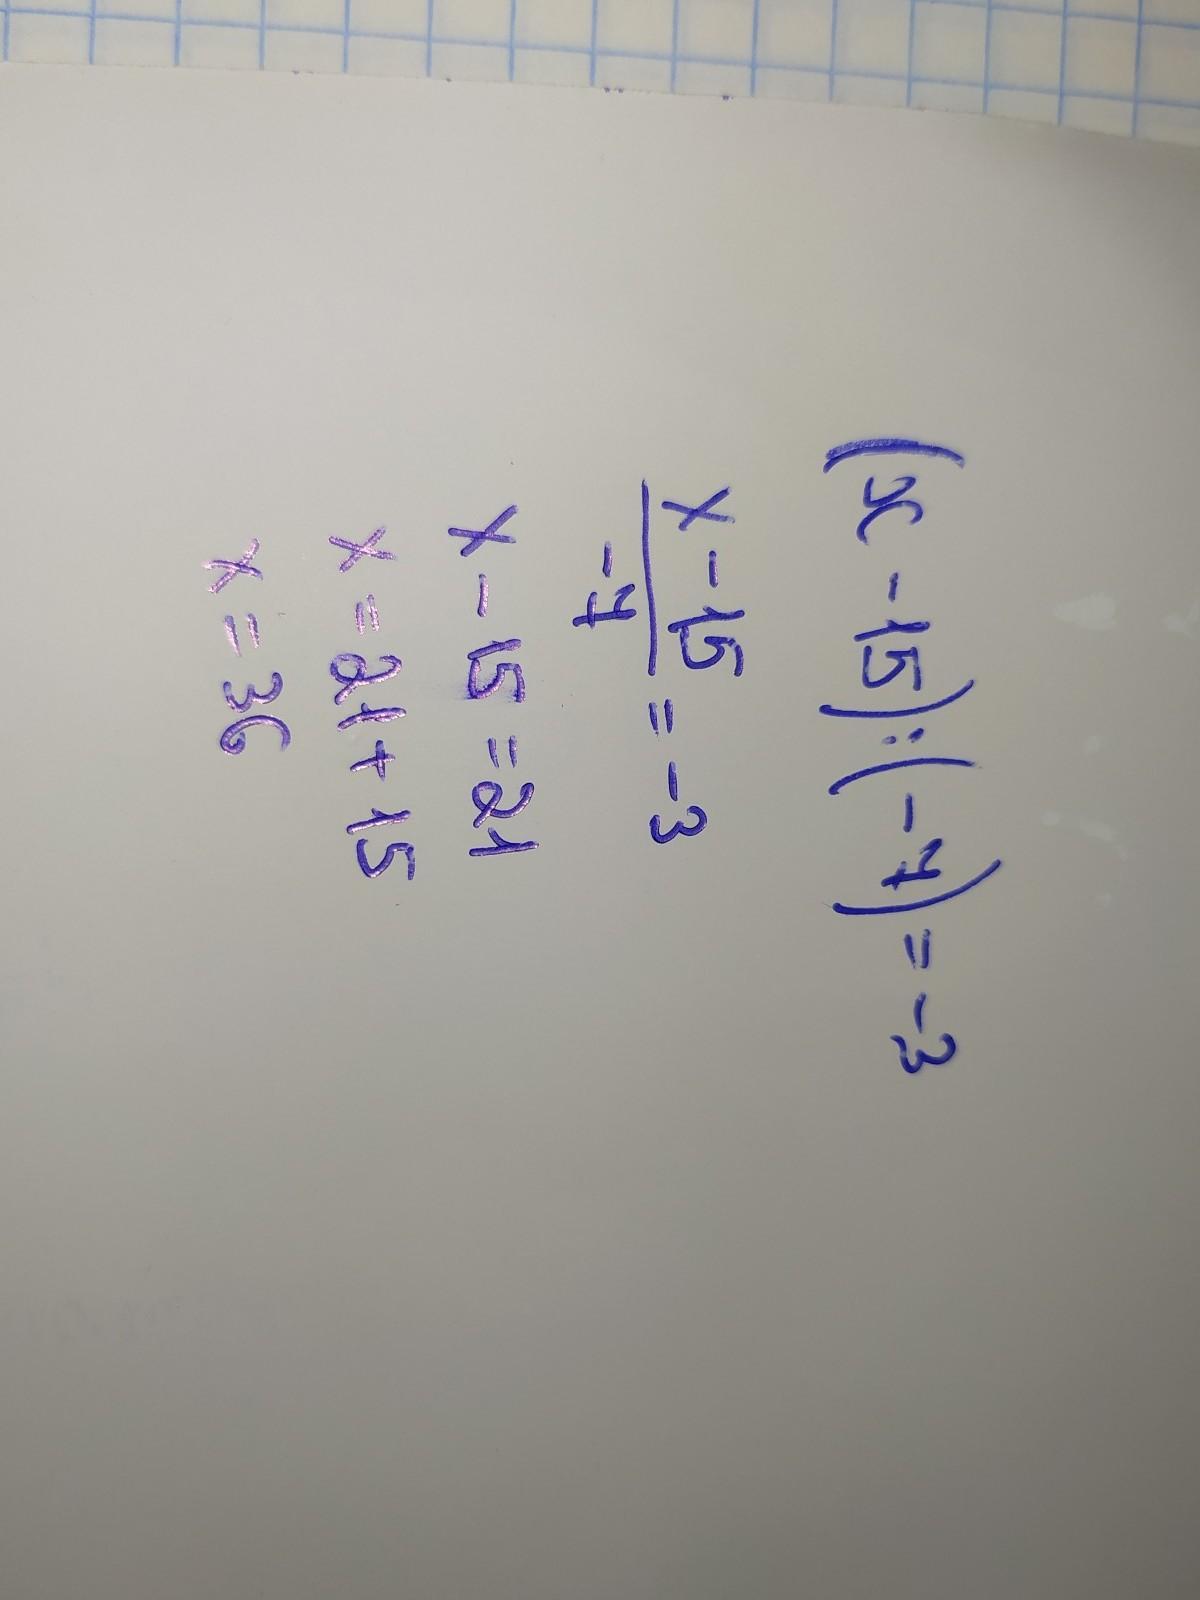 (x - 15) : (-7) = -3
x - 15 / -7 = -3
x - 15 = 21
x = 21 + 15
x = 36